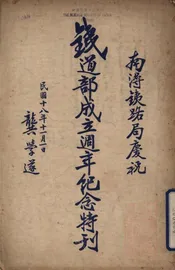 南潯鐵路局慶祝
鐵道部成立週年紀念特刊
民國十八年十一月一日
龔學遂